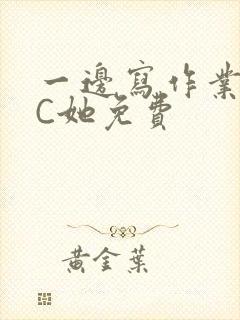 一邊寫作業
C她免費
黃金葉